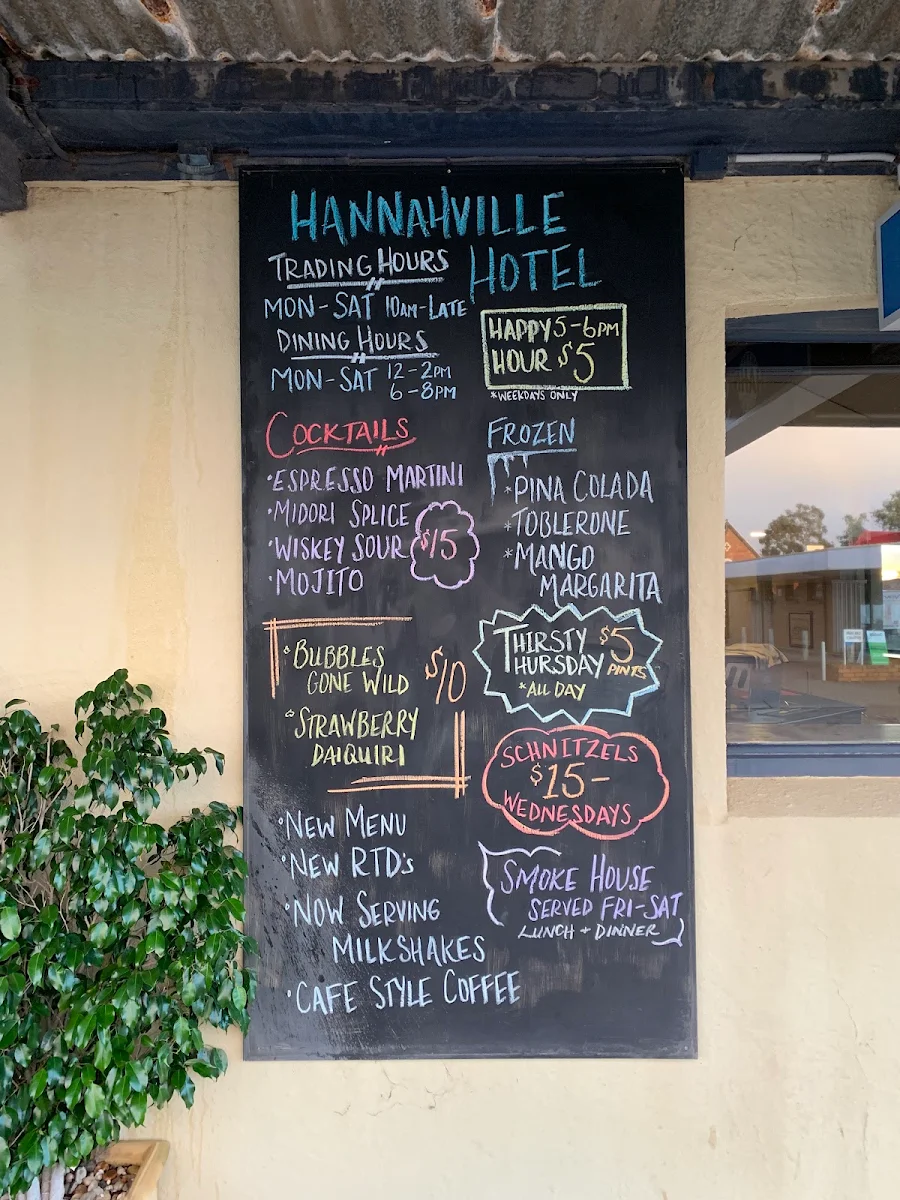 HANNAHVILLE
HOTEL
TRADING HOURS
MON-SAT 10AM-LATE
DINING HOURS
MON-SAT 12-2PM
6-8PM
HAPPY 5-6PM
HOUR $5
*WEEKDAYS ONLY
COCKTAILS
·ESPRESSO MARTINI
·MIDORI SPLICE
·WISKEY SOUR $15
·MOJITO
FROZEN
*PINA COLADA
*TOBLERONE
*MANGO
MARGARITA
BUBBLES
GONE WILD $10
STRAWBERRY
DAIQUIRI
THIRSTY $5
THURSDAY PINTS
*ALL DAY
SCHNITZELS
$15-
WEDNESDAYS
·NEW MENU
·NEW RTD's
·NOW SERVING
MILKSHAKES
·CAFE STYLE COFFEE
SMOKE HOUSE
SERVED FRI-SAT
LUNCH + DINNER